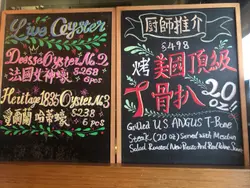 Live Oyster
Deesse Oyster No.2
法國女神蠔 $268
6 pcs
Heritage 1835 Oyster No.3
愛爾蘭 $238
6 pcs
廚師推介
$498
烤美國頂級
T骨扒
20oz
Grilled U.S ANGUS T-Bone
Steak (20 oz) Served with Mesclun
Salad, Roasted New Potato And Red Wine Sauce